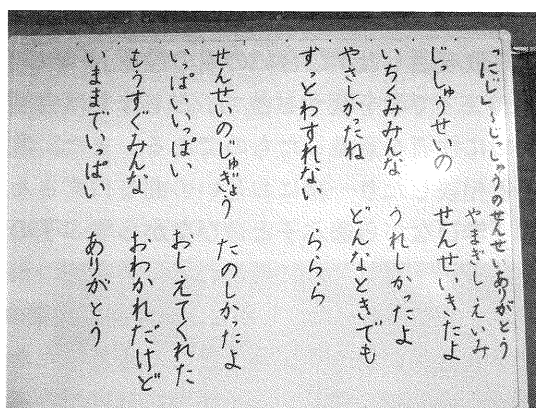 「にじ」～じっしゅうのせんせいありがとう
やまぎし えいみ
じっしゅうせいの せんせいきたよ
いちくみみんな うれしかったよ
やさしかったね どんなときでも
ずっとわすれない ららら
せんせいのじゅぎょう たのしかったよ
いっぱいいっぱい おしえてくれた
もうすぐみんな おわかれだけど
いままでいっぱい ありがとう